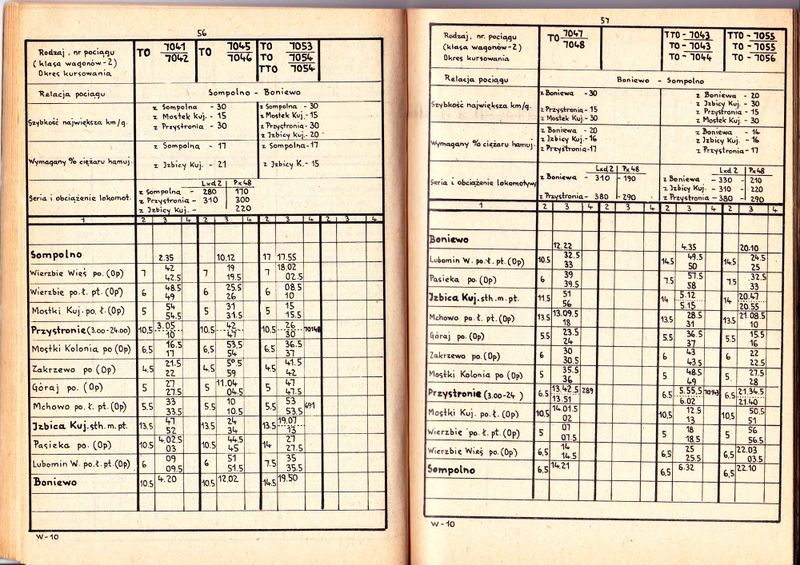 56
Rodzaj, nr pociągu
(klasa wagonów-2)
Okres kursowania
TO 7041 7042
TO 7045 7046
TO 7053
TO 7054
TTO 7054
Relacja pociągu
Sompolno - Boniewo
Szybkość największa km/g.
z Sompolna - 30
z Mostek Kuj. - 15
z Przystronia - 30
z Sompolna - 30
z Mostek Kuj. - 15
z Przystronia - 30
z Izbicy Kuj. - 20
Wymagany % ciężaru hamuj.
z Sompolna - 17
z Izbicy Kuj. - 21
z Sompolna - 17
z Izbicy K. - 15
Seria i obciążenie lokomot.
Lxd2 Px48
z Sompolna - 280 170
z Przystronia - 310 300
z Izbicy Kuj. - 220
1 2 3 4 2 3 4 2 3 4 2 3 4
Sompolno 2.35 10.12 17 17.55
Wierzbie Wieś po. (Op) 7 42 42.5 7 19 19.5 7 18.02 02.5
Wierzbie po. ł. pt. (Op) 6 48.5 49 6 25.5 26 6 08.5 10
Mostki Kuj. po ł. (Op) 5 54 54.5 5 31 31.5 5 15 15.5
Przystronie (3.00-24.00) 10.5 3.05 10 10.5 42 47 10.5 26 30 70148
Mostki Kolonia po (Op) 6.5 16.5 17 6.5 53.5 54 6.5 36.5 37
Zakrzewo po (Op) 4.5 21.5 22 4.5 58.5 59 4.5 41.5 42
Góraj po. (Op) 5 27 27.5 5 11.04 04.5 5 47 47.5
Mchowo po. ł. pt. (Op) 5.5 33 33.5 5.5 10 10.5 5.5 53 53.5 491
Izbica Kuj. sth. m. pt. 13.5 47 52 13.5 24 34 13.5 19.07 13
Pasieka po. (Op) 10.5 4.02.5 03 10.5 44.5 45 14 27 27.5
Lubomin W. po. ł. pt. (Op) 6 09 09.5 6 51 51.5 7.5 35 35.5
Boniewo 10.5 4.20 10.5 12.02 14.5 19.50
W-10
57
Rodzaj, nr pociągu
(klasa wagonów-2)
Okres kursowania
TO 7047 7048
TTO - 7043
TO - 7043
TO - 7044
TTO - 7055
TO - 7055
TO - 7056
Relacja pociągu
Boniewo - Sompolno
Szybkość największa km/g.
z Boniewa - 30
z Przystronia - 15
z Mostek Kuj. - 30
z Boniewa - 20
z Izbicy Kuj. - 30
z Przystronia - 15
z Mostek Kuj. - 30
Wymagany % ciężaru hamuj.
z Boniewa - 20
z Izbicy Kuj. - 16
z Przystronia - 17
z Boniewa - 14
z Izbicy Kuj. - 16
z Przystronia - 17
Seria i obciążenie lokomotywy
Lxd2 Px48
z Boniewa - 310 - 190
z Przystronia - 380 - 290
Lxd2 Px48
z Boniewa - 330 - 210
z Izbicy Kuj. - 310 - 220
z Przystronia - 380 - 290
1 2 3 4 2 3 4 2 3 4 2 3 4
Boniewo 12.22 4.35 20.10
Lubomin W. po. ł. pt. (Op) 10.5 32.5 33 14.5 49.5 50 14.5 24.5 25
Pasieka po (Op) 6 39 39.5 7.5 57.5 58 7.5 32.5 33
Izbica Kuj. sth. m. pt. 11.5 51 56 14 5.12 5.15 14 20.47 20.55
Mchowo po. ł. pt. (Op) 13.5 13.09.5 18 13.5 28.5 31 13.5 21.08.5 10
Góraj po. (Op) 5.5 23.5 24 5.5 36.5 37 5.5 15.5 16
Zakrzewo po. (Op) 6 30 30.5 6 43 43.5 6 22 22.5
Mostki Kolonia po (Op) 5 35.5 36 5 48.5 49 5 27.5 28
Przystronie (3.00-24) 6.5 13.42.5 13.51 289 6.5 5.55.5 6.02 6.5 21.34.5 21.40
Mostki Kuj. po ł. (Op) 10.5 14.01.5 02 10.5 12.5 13 10.5 50.5 51
Wierzbie po. ł. pt. (Op) 5 07 07.5 5 18 18.5 5 56 56.5
Wierzbie Wieś po. (Op) 6.5 14 14.5 6.5 25 25.5 6.5 22.03 03.5
Sompolno 6.5 14.21 6.5 6.32 6.5 22.10
W-10